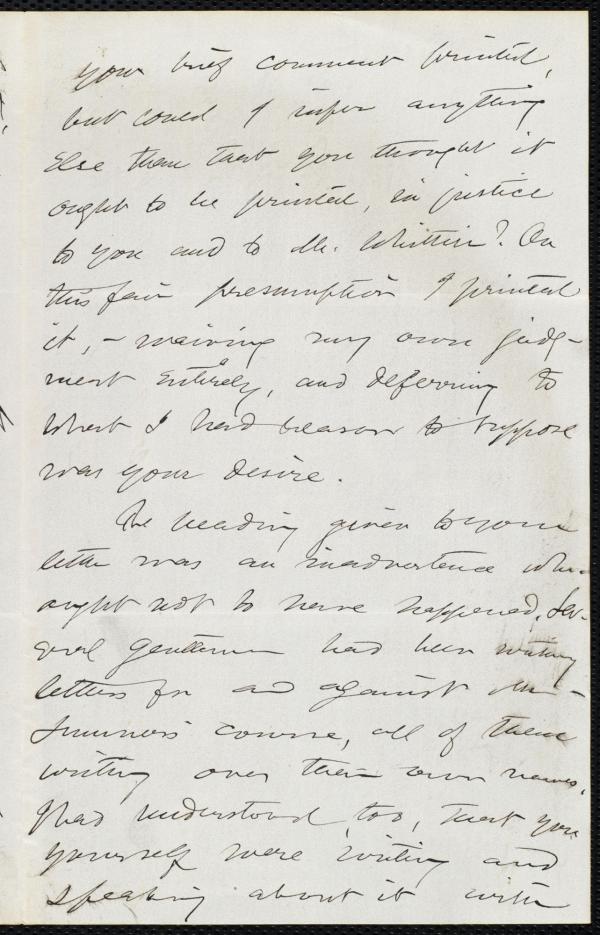 your brief comment printed,
but could I infer anything
Else than that you thought it
ought to be printed, in justice
to you and to Mr. Whittier? On
this fair presumption I printed
it, – waiving my own judg-
ment entirely, and deferring to
what I had reason to suppose
was your desire.
The heading given to your
letter was an inadvertence wh.
ought not to have happened. Sev-
eral gentlemen had been writing
letters for and against Mr.
Sumner's course, all of them
writing over their own names.
I had understood, too, that you
yourself were writing and
speaking about it with